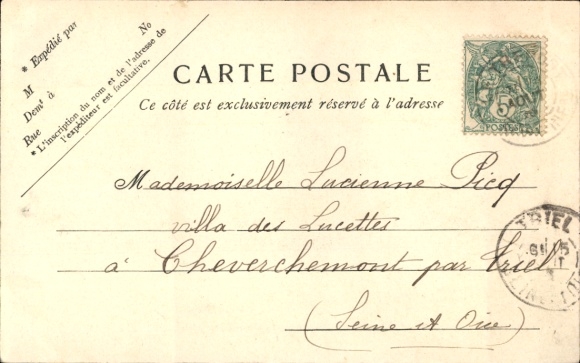 * Expédié par
No
M
Demt à
Rue
* L'inscription du nom et de l'adresse de
l'expéditeur est facultative.
CARTE POSTALE
Ce côté est exclusivement réservé à l'adresse
5
POSTES
Mademoiselle Lucienne Picq
villa des Lucettes
à Cheverchemont par Triel
(Seine et Oise)
TRIEL